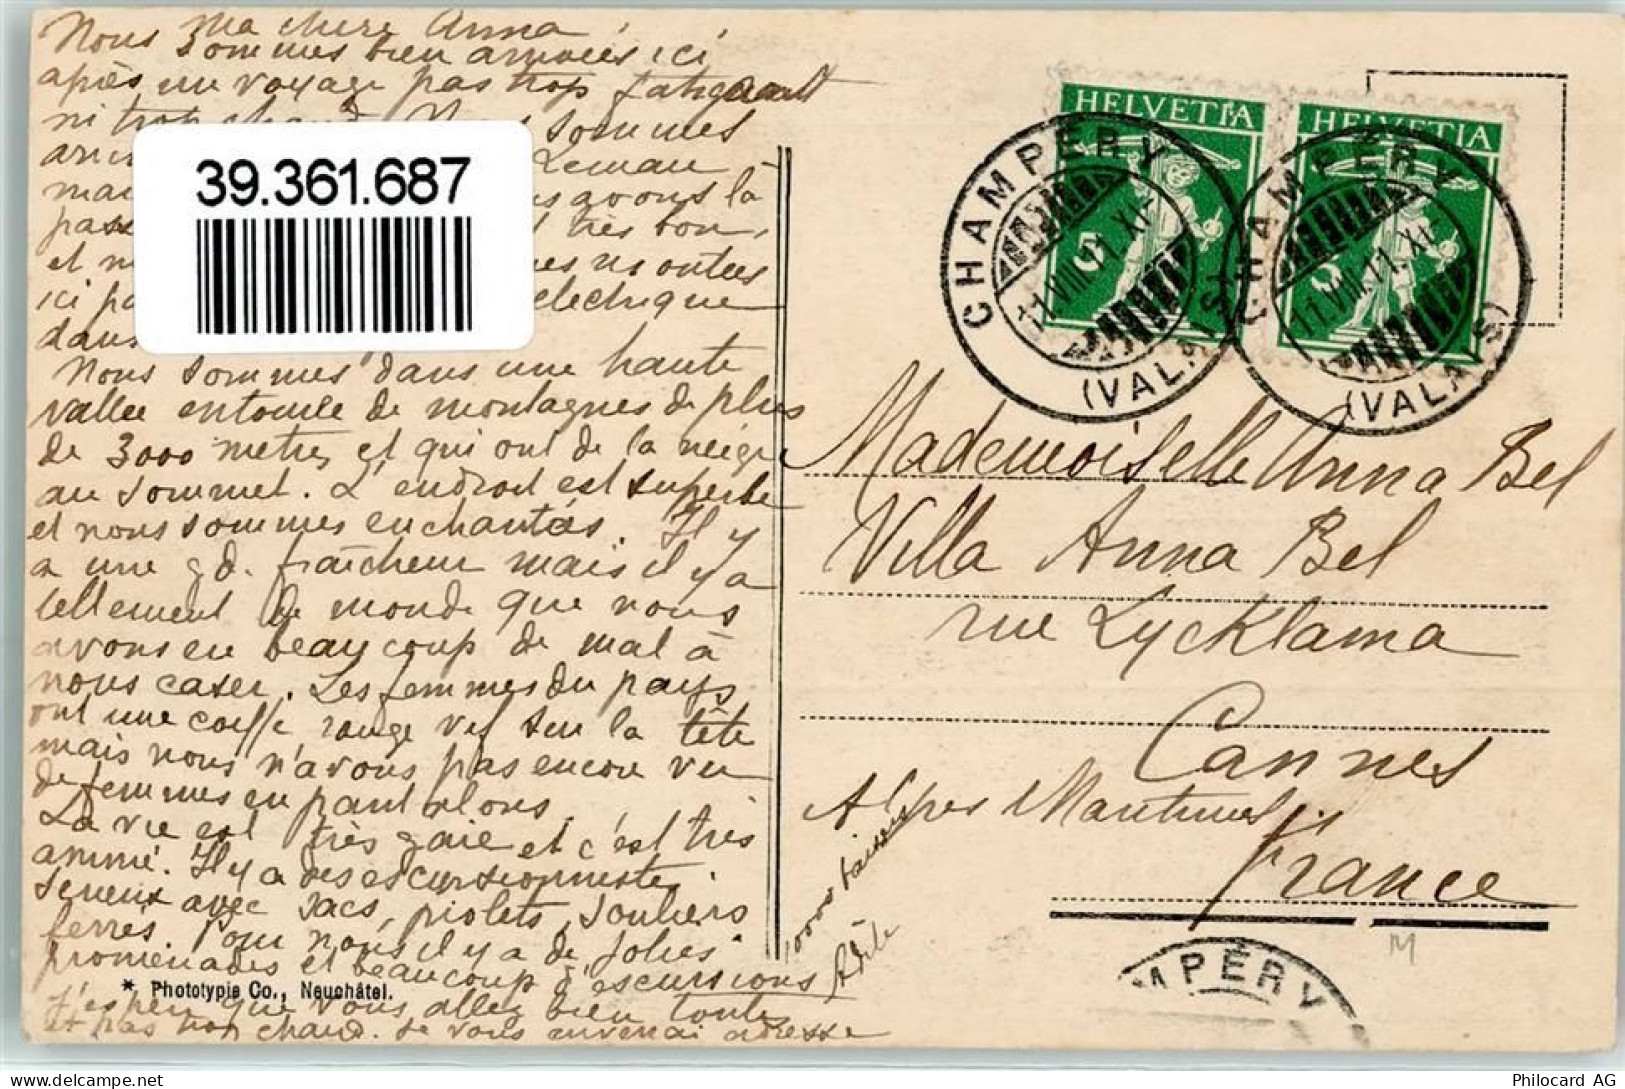 Ma chère Anna
Nous sommes bien arrivées ici
après un voyage pas trop fatiguant
ni trop chaud. Nous sommes
Leman
mai avons là
pass très bon,
et n montées
ici pa electrique
dans
Nous sommes dans une haute
vallée entourée de montagnes de plus
de 3000 metres et qui ont de la neige
au sommet. L'endroit est superbe
et nous sommes enchantés. Il y
a une gd. fraîcheur mais il y a
tellement de monde que nous
avons eu beaucoup de mal à
nous caser. Les femmes du pays
ont une coiffe rouge vif sur la tête
mais nous n'avons pas encore vu
de femmes en pantalons.
La vie est très gaie et c'est très
animé. Il y a des escursionnistes
serieux avec sacs, piolets, souliers
ferrés. Pour nous il y a de jolies
promenades et beaucoup d'escursions
J'espère que vous allez bien toutes
et pas trop chaud. Je vous enverrai adresse
10000 baisers
Adèle
39.361.687
* Phototypie Co., Neuchâtel.
HELVETIA
HELVETIA
5
5
CHAMPÉRY
(VALAIS)
11.VIII.11.XI
CHAMPÉRY
(VALAIS)
11.VIII.11.XI
Mademoiselle Anna Bel
Villa Anna Bel
rue Lycklama
Cannes
Alpes Maritimes.
France
M
MPÉRY
Philocard AG